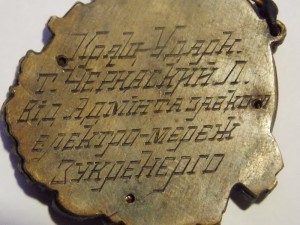 Кращ-Ударн.
т. Чернаский Л.
від Адмінта завком
електро-мереж
Зукренерго